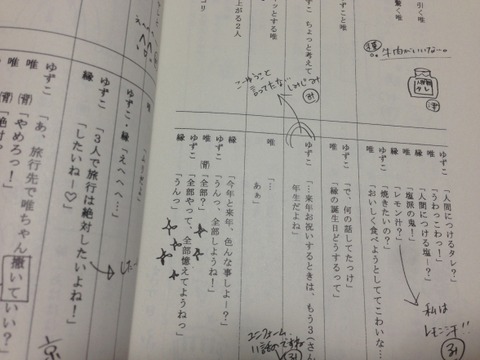 引く唯
ずこと唯
ッとする唯
ゆずこ ちょっと考えて
上がる2人
コリ
牛肉がいいな…。
ゆずこ 「人間につけるタレ？」
「うわっこわっ！」
唯 「人間につける塩…？」
縁 「塩派の鬼！」
唯 「レモン汁？」
ゆずこ 「焼きたいの？」
唯 「おいしく食べようとしててこわいな…
私は
レモン汁!!
ゆずこ 「で、何の話してたっけ」
唯 「縁の誕生日どうするって」
ゆずこ 「…来年お祝いするときは、もう3（さん
年生だよね」
しみじみ
こーゆうこと
言ってたな…
唯 「…」
「あぁ」
縁 「今年と来年、色んな事しよー？」
ゆずこ 「うんっ、全部しようね！」
唯 （背） 「全部？」
ゆずこ 「全部やって、全部憶えてようねっ」
縁 「うんっ」
ゆずこ・縁 「えへへへ…」
ゆずこ 「3人で旅行は絶対したいよね！」
縁 「したいねー♡」
ゆずこ 「あ、旅行先で唯ちゃん撒いていい？」
唯 （背） 「やめろっ！」